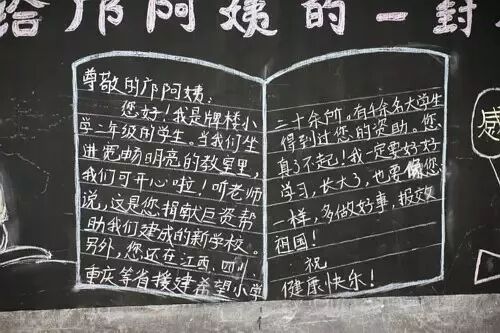 给邝阿姨的一封
尊敬的邝阿姨:
您好!我是牌楼小
学二年级的学生。当我们坐
进宽畅明亮的教室里,
我们可开心啦!听老师
说,这是您捐献巨资帮
助我们建成的新学校。
另外,您还在江西、四川
重庆等省援建希望小学
二十余所,有千余名大学生
得到过您的资助。您
真了不起!我一定要好好
学习,长大了,也要像您
一样,多做好事,报效
祖国!
祝
健康快乐!
感